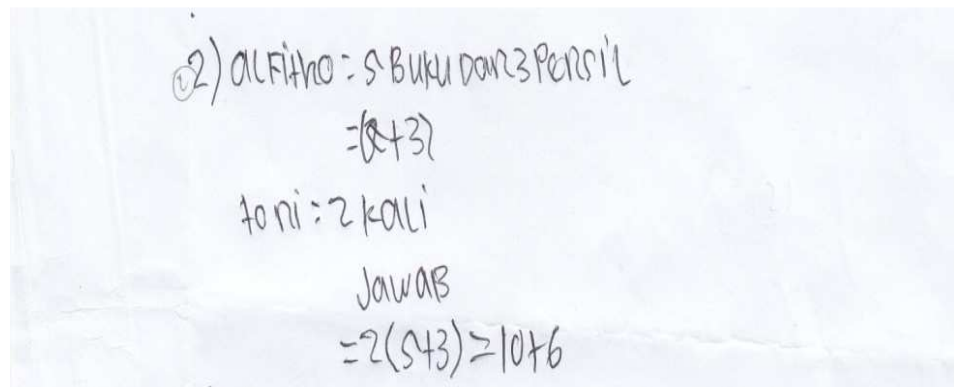 2) alFitho = 5 Buku Dan 3 Pensil
=(5+3)
toni = 2 kali
Jawab
=2(5+3) = 10+6